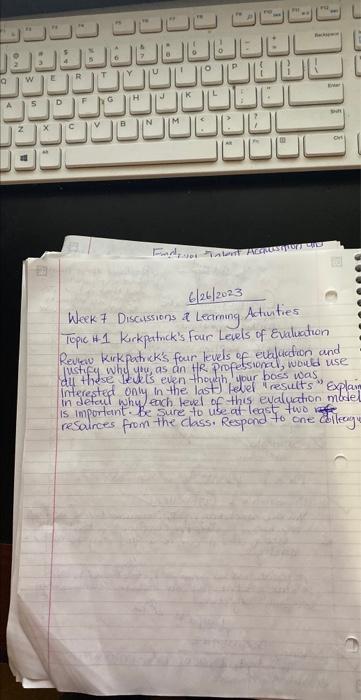 Backspace
Q W E R T Y U I O P
Enter
A S D F G H J K L
Shift
Z X C V B N M
Alt Fn Ctrl
Talent Acquisition and
6/26/2023
Week 7 Discussions & Learning Activities
Topic #1 Kirkpatrick's Four Levels of Evaluation
Review Kirkpatrick's four levels of evaluation and
justify why you, as an HR professional, would use
all these levels even though your boss was
interested only in the last level "results" Explain
in detail why each level of this evaluation model
is important. Be sure to use at least two
resources from the class. Respond to one colleagu